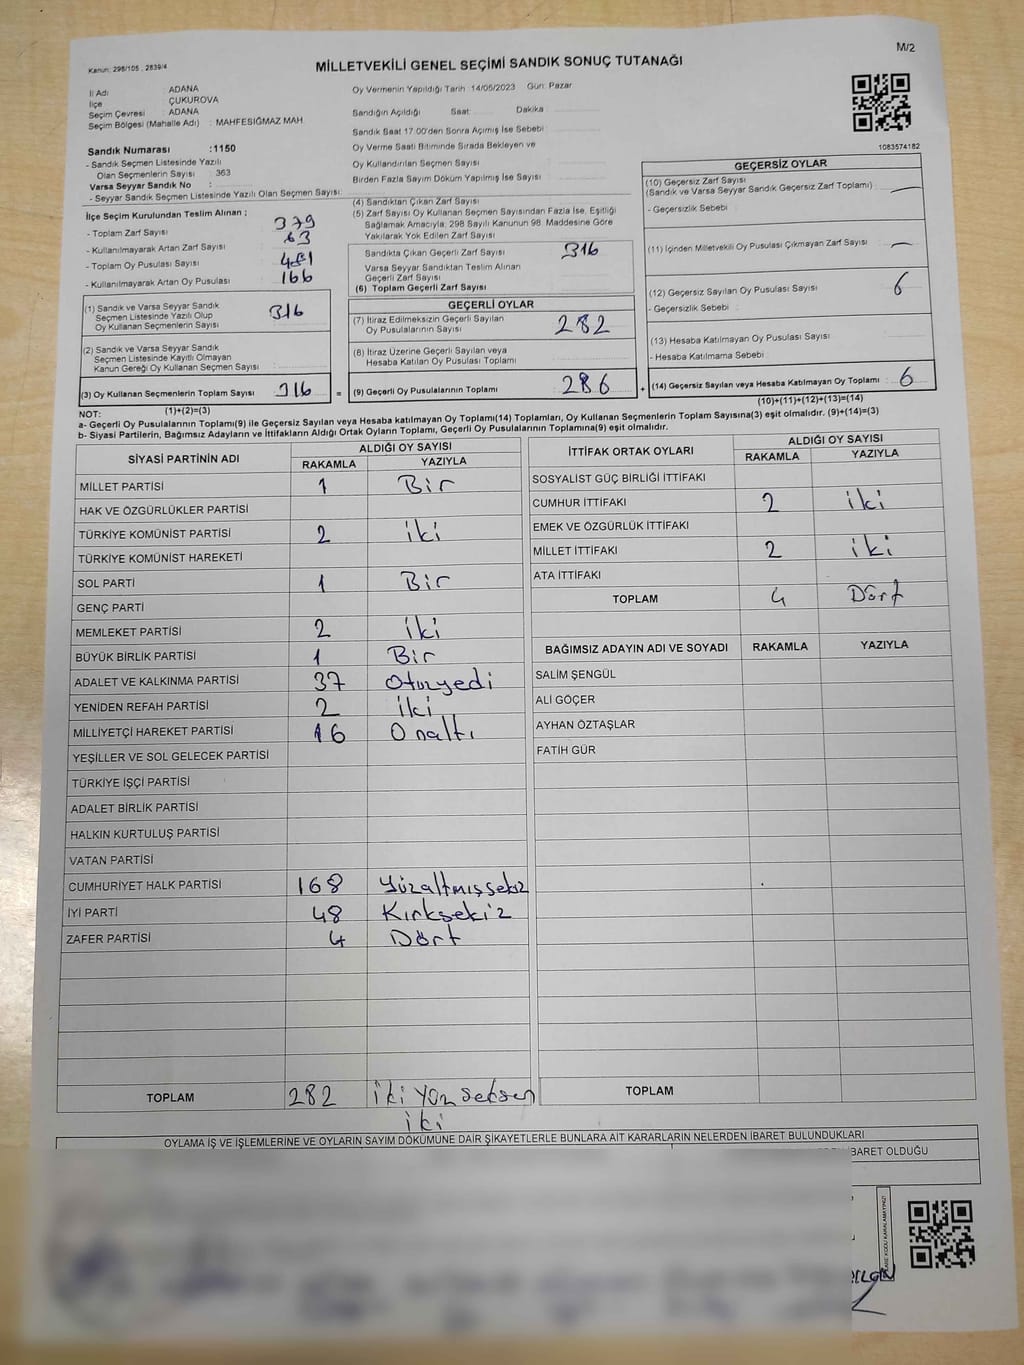 M/2
Kanun: 298/105 , 2839/4
MİLLETVEKİLİ GENEL SEÇİMİ SANDIK SONUÇ TUTANAĞI
İl Adı : ADANA
İlçe : ÇUKUROVA
Seçim Çevresi : ADANA
Seçim Bölgesi (Mahalle Adı) : MAHFESIĞMAZ MAH.
Sandık Numarası :1150
- Sandık Seçmen Listesinde Yazılı
Olan Seçmenlerin Sayısı : 363
Varsa Seyyar Sandık No :
- Seyyar Sandık Seçmen Listesinde Yazılı Olan Seçmen Sayısı:
Oy Vermenin Yapıldığı Tarih :14/05/2023 Gün: Pazar
Sandığın Açıldığı Saat: Dakika :
Sandık Saat 17.00'den Sonra Açımış İse Sebebi :
Oy Verme Saati Bitiminde Sırada Bekleyen ve
Oy Kullandırılan Seçmen Sayısı :
Birden Fazla Sayım Döküm Yapılmış İse Sayısı :
1083574182
İlçe Seçim Kurulundan Teslim Alınan ;
- Toplam Zarf Sayısı : 379
- Kullanılmayarak Artan Zarf Sayısı : 63
- Toplam Oy Pusulası Sayısı :
- Kullanılmayarak Artan Oy Pusulası : 166
(1) Sandık ve Varsa Seyyar Sandık
Seçmen Listesinde Yazılı Olup
Oy Kullanan Seçmenlerin Sayısı : 316
(2) Sandık ve Varsa Seyyar Sandık
Seçmen Listesinde Kayıtlı Olmayan
Kanun Gereği Oy Kullanan Seçmen Sayısı :
(3) Oy Kullanan Seçmenlerin Toplam Sayısı : 316 =
(1)+(2)=(3)
(4) Sandıktan Çıkan Zarf Sayısı
(5) Zarf Sayısı Oy Kullanan Seçmen Sayısından Fazla İse, Eşitliği
Sağlamak Amacıyla; 298 Sayılı Kanunun 98. Maddesine Göre
Yakılarak Yok Edilen Zarf Sayısı :
Sandıkta Çıkan Geçerli Zarf Sayısı : 316
Varsa Seyyar Sandıktan Teslim Alınan
Geçerli Zarf Sayısı
(6) Toplam Geçerli Zarf Sayısı :
GEÇERLİ OYLAR
(7) İtiraz Edilmeksizin Geçerli Sayılan
Oy Pusulalarının Sayısı : 282
(8) İtiraz Üzerine Geçerli Sayılan veya
Hesaba Katılan Oy Pusulası Toplamı :
(9) Geçerli Oy Pusulalarının Toplamı : 286 +
GEÇERSİZ OYLAR
(10) Geçersiz Zarf Sayısı
(Sandık ve Varsa Seyyar Sandık Geçersiz Zarf Toplamı) : —
- Geçersizlik Sebebi :
(11) İçinden Milletvekili Oy Pusulası Çıkmayan Zarf Sayısı : —
(12) Geçersiz Sayılan Oy Pusulası Sayısı : 6
- Geçersizlik Sebebi :
(13) Hesaba Katılmayan Oy Pusulası Sayısı :
- Hesaba Katılmama Sebebi :
(14) Geçersiz Sayılan veya Hesaba Katılmayan Oy Toplamı : 6
(10)+(11)+(12)+(13)=(14)
NOT:
a- Geçerli Oy Pusulalarının Toplamı(9) ile Geçersiz Sayılan veya Hesaba katılmayan Oy Toplamı(14) Toplamları, Oy Kullanan Seçmenlerin Toplam Sayısına(3) eşit olmalıdır. (9)+(14)=(3)
b- Siyasi Partilerin, Bağımsız Adayların ve İttifakların Aldığı Ortak Oyların Toplamı, Geçerli Oy Pusulalarının Toplamına(9) eşit olmalıdır.
SİYASİ PARTİNİN ADI ALDIĞI OY SAYISI
RAKAMLA YAZIYLA
MİLLET PARTİSİ 1 Bir
HAK VE ÖZGÜRLÜKLER PARTİSİ
TÜRKİYE KOMÜNİST PARTİSİ 2 iki
TÜRKİYE KOMÜNİST HAREKETİ
SOL PARTİ 1 Bir
GENÇ PARTİ
MEMLEKET PARTİSİ 2 iki
BÜYÜK BİRLİK PARTİSİ 1 Bir
ADALET VE KALKINMA PARTİSİ 37 Otuzyedi
YENİDEN REFAH PARTİSİ 2 iki
MİLLİYETÇİ HAREKET PARTİSİ 16 Onaltı
YEŞİLLER VE SOL GELECEK PARTİSİ
TÜRKİYE İŞÇİ PARTİSİ
ADALET BİRLİK PARTİSİ
HALKIN KURTULUŞ PARTİSİ
VATAN PARTİSİ
CUMHURİYET HALK PARTİSİ 168 Yüzaltmışsekiz
İYİ PARTİ 48 Kırksekiz
ZAFER PARTİSİ 4 Dört
TOPLAM 282 iki Yüz seksen
iki
İTTİFAK ORTAK OYLARI ALDIĞI OY SAYISI
RAKAMLA YAZIYLA
SOSYALİST GÜÇ BİRLİĞİ İTTİFAKI
CUMHUR İTTİFAKI 2 iki
EMEK VE ÖZGÜRLÜK İTTİFAKI
MİLLET İTTİFAKI 2 iki
ATA İTTİFAKI
TOPLAM 4 Dört
BAĞIMSIZ ADAYIN ADI VE SOYADI RAKAMLA YAZIYLA
SALİM ŞENGÜL
ALİ GÖÇER
AYHAN ÖZTAŞLAR
FATİH GÜR
TOPLAM
OYLAMA İŞ VE İŞLEMLERİNE VE OYLARIN SAYIM DÖKÜMÜNE DAİR ŞİKAYETLERLE BUNLARA AİT KARARLARIN NELERDEN İBARET BULUNDUKLARI
BARET OLDUĞU
KARE KODU KARALAMAYINIZ!